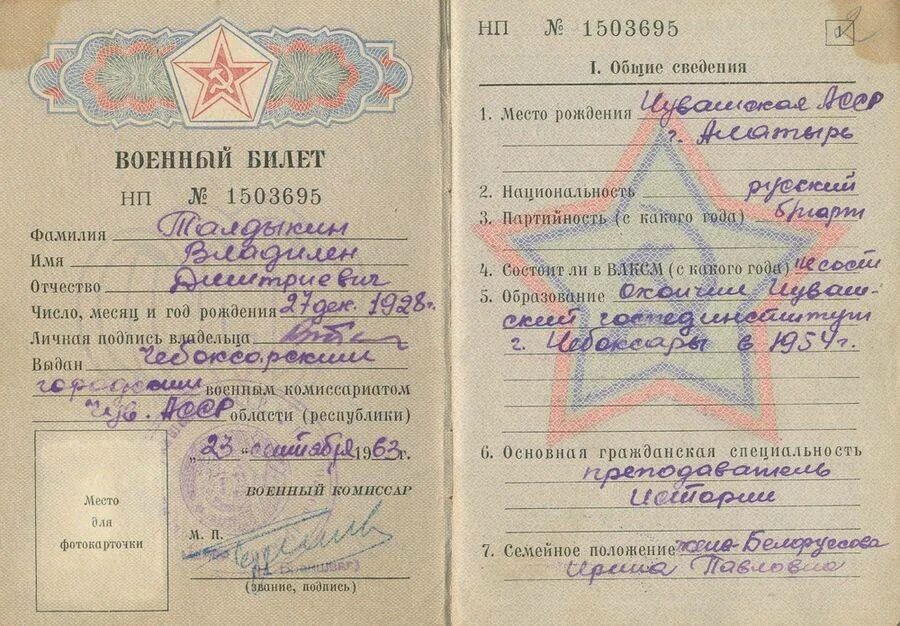 ВОЕННЫЙ БИЛЕТ
НП № 1503695
Фамилия Талдыкин
Имя Владилен
Отчество Дмитриевич
Число, месяц и год рождения 27 дек. 1928 г.
Личная подпись владельца
Выдан Чебоксарским
городским военным комиссариатом
Чув. АССР области (республики)
„23“ сентября 1963 г.
ВОЕННЫЙ КОМИССАР
М. П.
(звание, подпись)
Место
для
фотокарточки
НП № 1503695
I. Общие сведения
1. Место рождения Чувашская АССР
г. Алатырь
2. Национальность русский
3. Партийность (с какого года) б/парт
4. Состоит ли в ВЛКСМ (с какого года) не сост
5. Образование окончил Чуваш-
ский госпединститут
г. Чебоксары в 1954 г.
6. Основная гражданская специальность
преподаватель
истории
7. Семейное положение жена-Белоруссова
Ирина Павловна